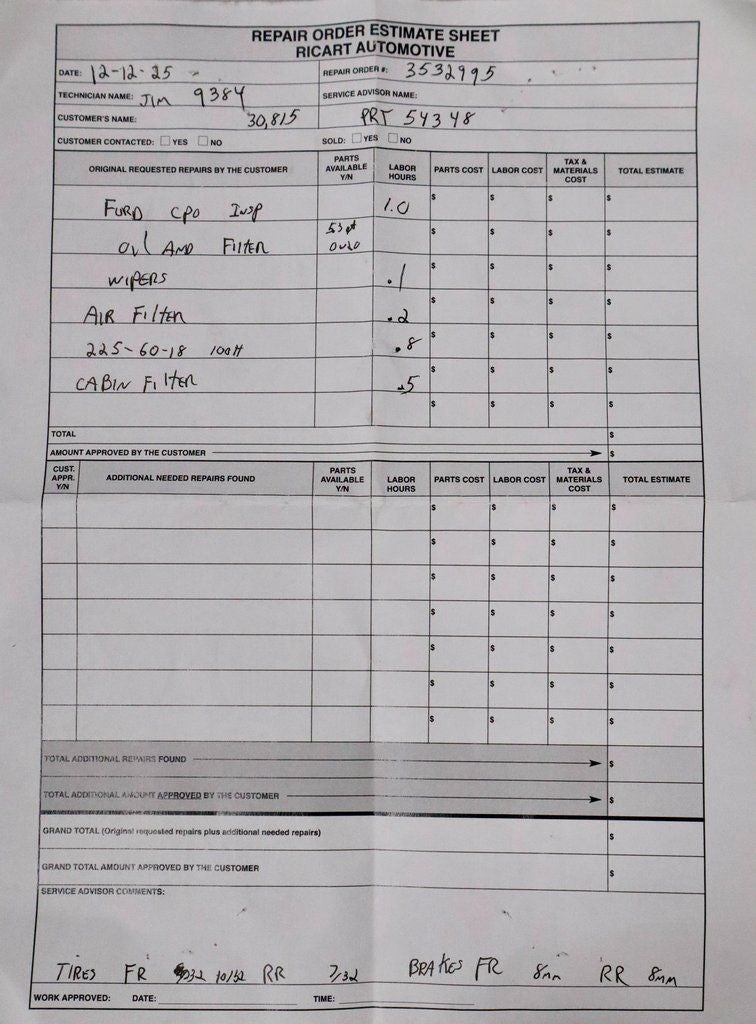 REPAIR ORDER ESTIMATE SHEET
RICART AUTOMOTIVE
DATE: 12-12-25 REPAIR ORDER #: 3532995
TECHNICIAN NAME: JIM 9384 SERVICE ADVISOR NAME:
CUSTOMER'S NAME: 30,815 PRT 54348
CUSTOMER CONTACTED: ☐ YES ☐ NO SOLD: ☐ YES ☐ NO
ORIGINAL REQUESTED REPAIRS BY THE CUSTOMER PARTS AVAILABLE Y/N LABOR HOURS PARTS COST LABOR COST TAX & MATERIALS COST TOTAL ESTIMATE
FORD CPO INSP 1.0 $ $ $ $
OIL AND FILTER 5.3 qt 0W20 $ $ $ $
WIPERS .1 $ $ $ $
AIR FILTER .2 $ $ $ $
225-60-18 100H .8 $ $ $ $
CABIN FILTER .5 $ $ $ $
$ $ $ $
TOTAL $
AMOUNT APPROVED BY THE CUSTOMER $
CUST. APPR. Y/N ADDITIONAL NEEDED REPAIRS FOUND PARTS AVAILABLE Y/N LABOR HOURS PARTS COST LABOR COST TAX & MATERIALS COST TOTAL ESTIMATE
$ $ $ $
$ $ $ $
$ $ $ $
$ $ $ $
$ $ $ $
$ $ $ $
$ $ $ $
TOTAL ADDITIONAL REPAIRS FOUND $
TOTAL ADDITIONAL AMOUNT APPROVED BY THE CUSTOMER $
GRAND TOTAL (Original requested repairs plus additional needed repairs) $
GRAND TOTAL AMOUNT APPROVED BY THE CUSTOMER $
SERVICE ADVISOR COMMENTS:
TIRES FR 10/32 RR 7/32 BRAKES FR 8mm RR 8mm
WORK APPROVED: DATE: TIME: